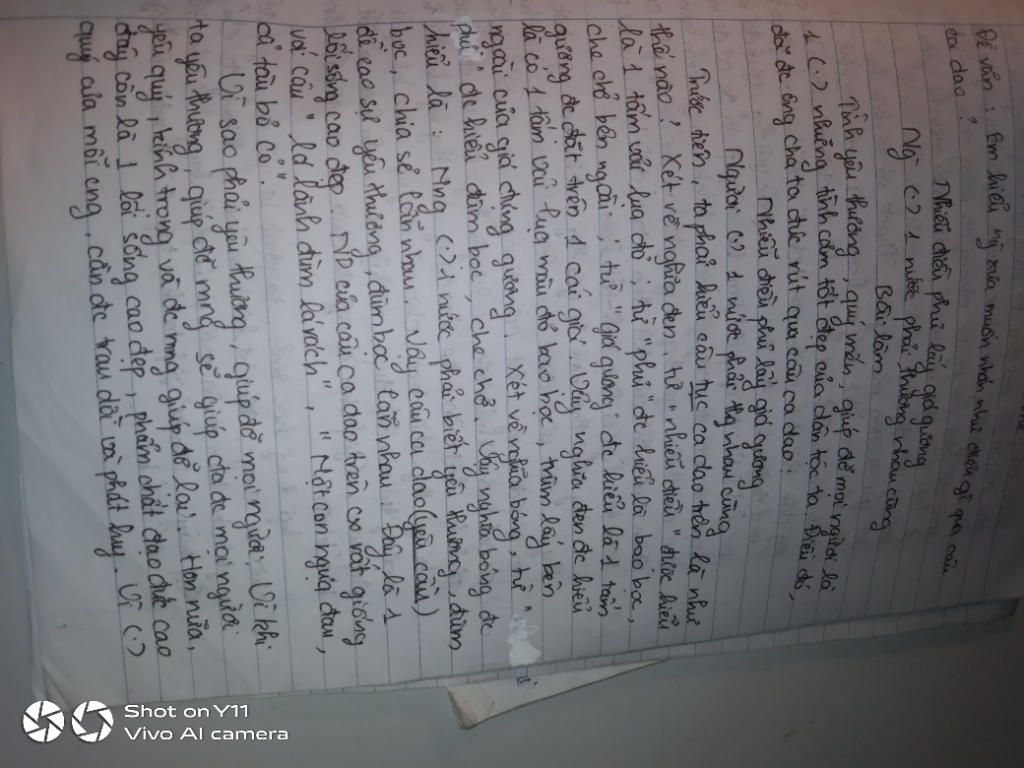 Đề văn: Em hiểu ng xưa muốn nhắn nhủ điều gì qua câu
ca dao?
Nhiễu điều phủ lấy giá gương
Ng (.) 1 nước phải thương nhau cùng
Bài làm
Tình yêu thương, quý mến, giúp đỡ mọi người là
1 (.) những tình cảm tốt đẹp của dân tộc ta. Điều đó,
đã đc ông cha ta đúc rút qua câu ca dao:
Nhiễu điều phủ lấy giá gương
Người (.) 1 nước phải thg nhau cùng
Trước tiên, ta phải hiểu câu tục ca dao trên là như
thế nào? Xét về nghĩa đen, từ "nhiễu điều" được hiểu
là 1 tấm vải lụa đỏ, từ "phủ" đc hiểu là bao bọc,
che chở bên ngoài, từ "giá gương" đc hiểu là 1 tấm
gương đc đặt trên 1 cái giá. Vậy nghĩa đen đc hiểu
là có 1 tấm vải lụa màu đỏ bao bọc, trùm lấy bên
ngoài của giá đựng gương. Xét về nghĩa bóng, từ "
phủ" đc hiểu đùm bọc, che chở. Vậy nghĩa bóng đc
hiểu là: Nng (.) 1 nước phải biết yêu thương, đùm
bọc, chia sẻ lẫn nhau. Vậy câu ca dao (yêu cầu)
đề cao sự yêu thương, đùm bọc lẫn nhau. Đây là 1
lối sống cao đẹp. ND của câu ca dao trên có rất giống
với câu "lá lành đùm lá rách", "Một con ngựa đau,
cả tàu bỏ cỏ".
Vì sao phải yêu thương, giúp đỡ mọi người, Vì khi
ta yêu thương, giúp đỡ mng sẽ giúp ta đc mọi người
yêu quý, kính trọng và đc mng giúp đỡ lại. Hơn nữa,
đây còn là 1 lối sống cao đẹp, phẩm chất đạo đức cao
quý của mỗi cng, cần đc trau dồi và phát huy. Vì (.)
Shot on Y11
Vivo AI camera